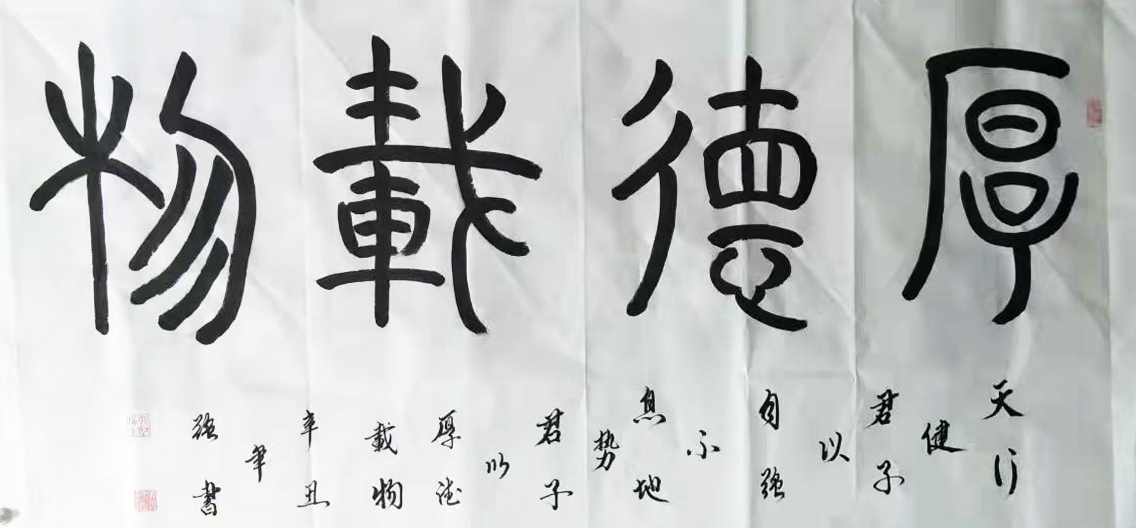 厚德載物
天行
健
君子
以
自强
不
息地
势
君子
以
厚德
載物
辛丑
年
强書